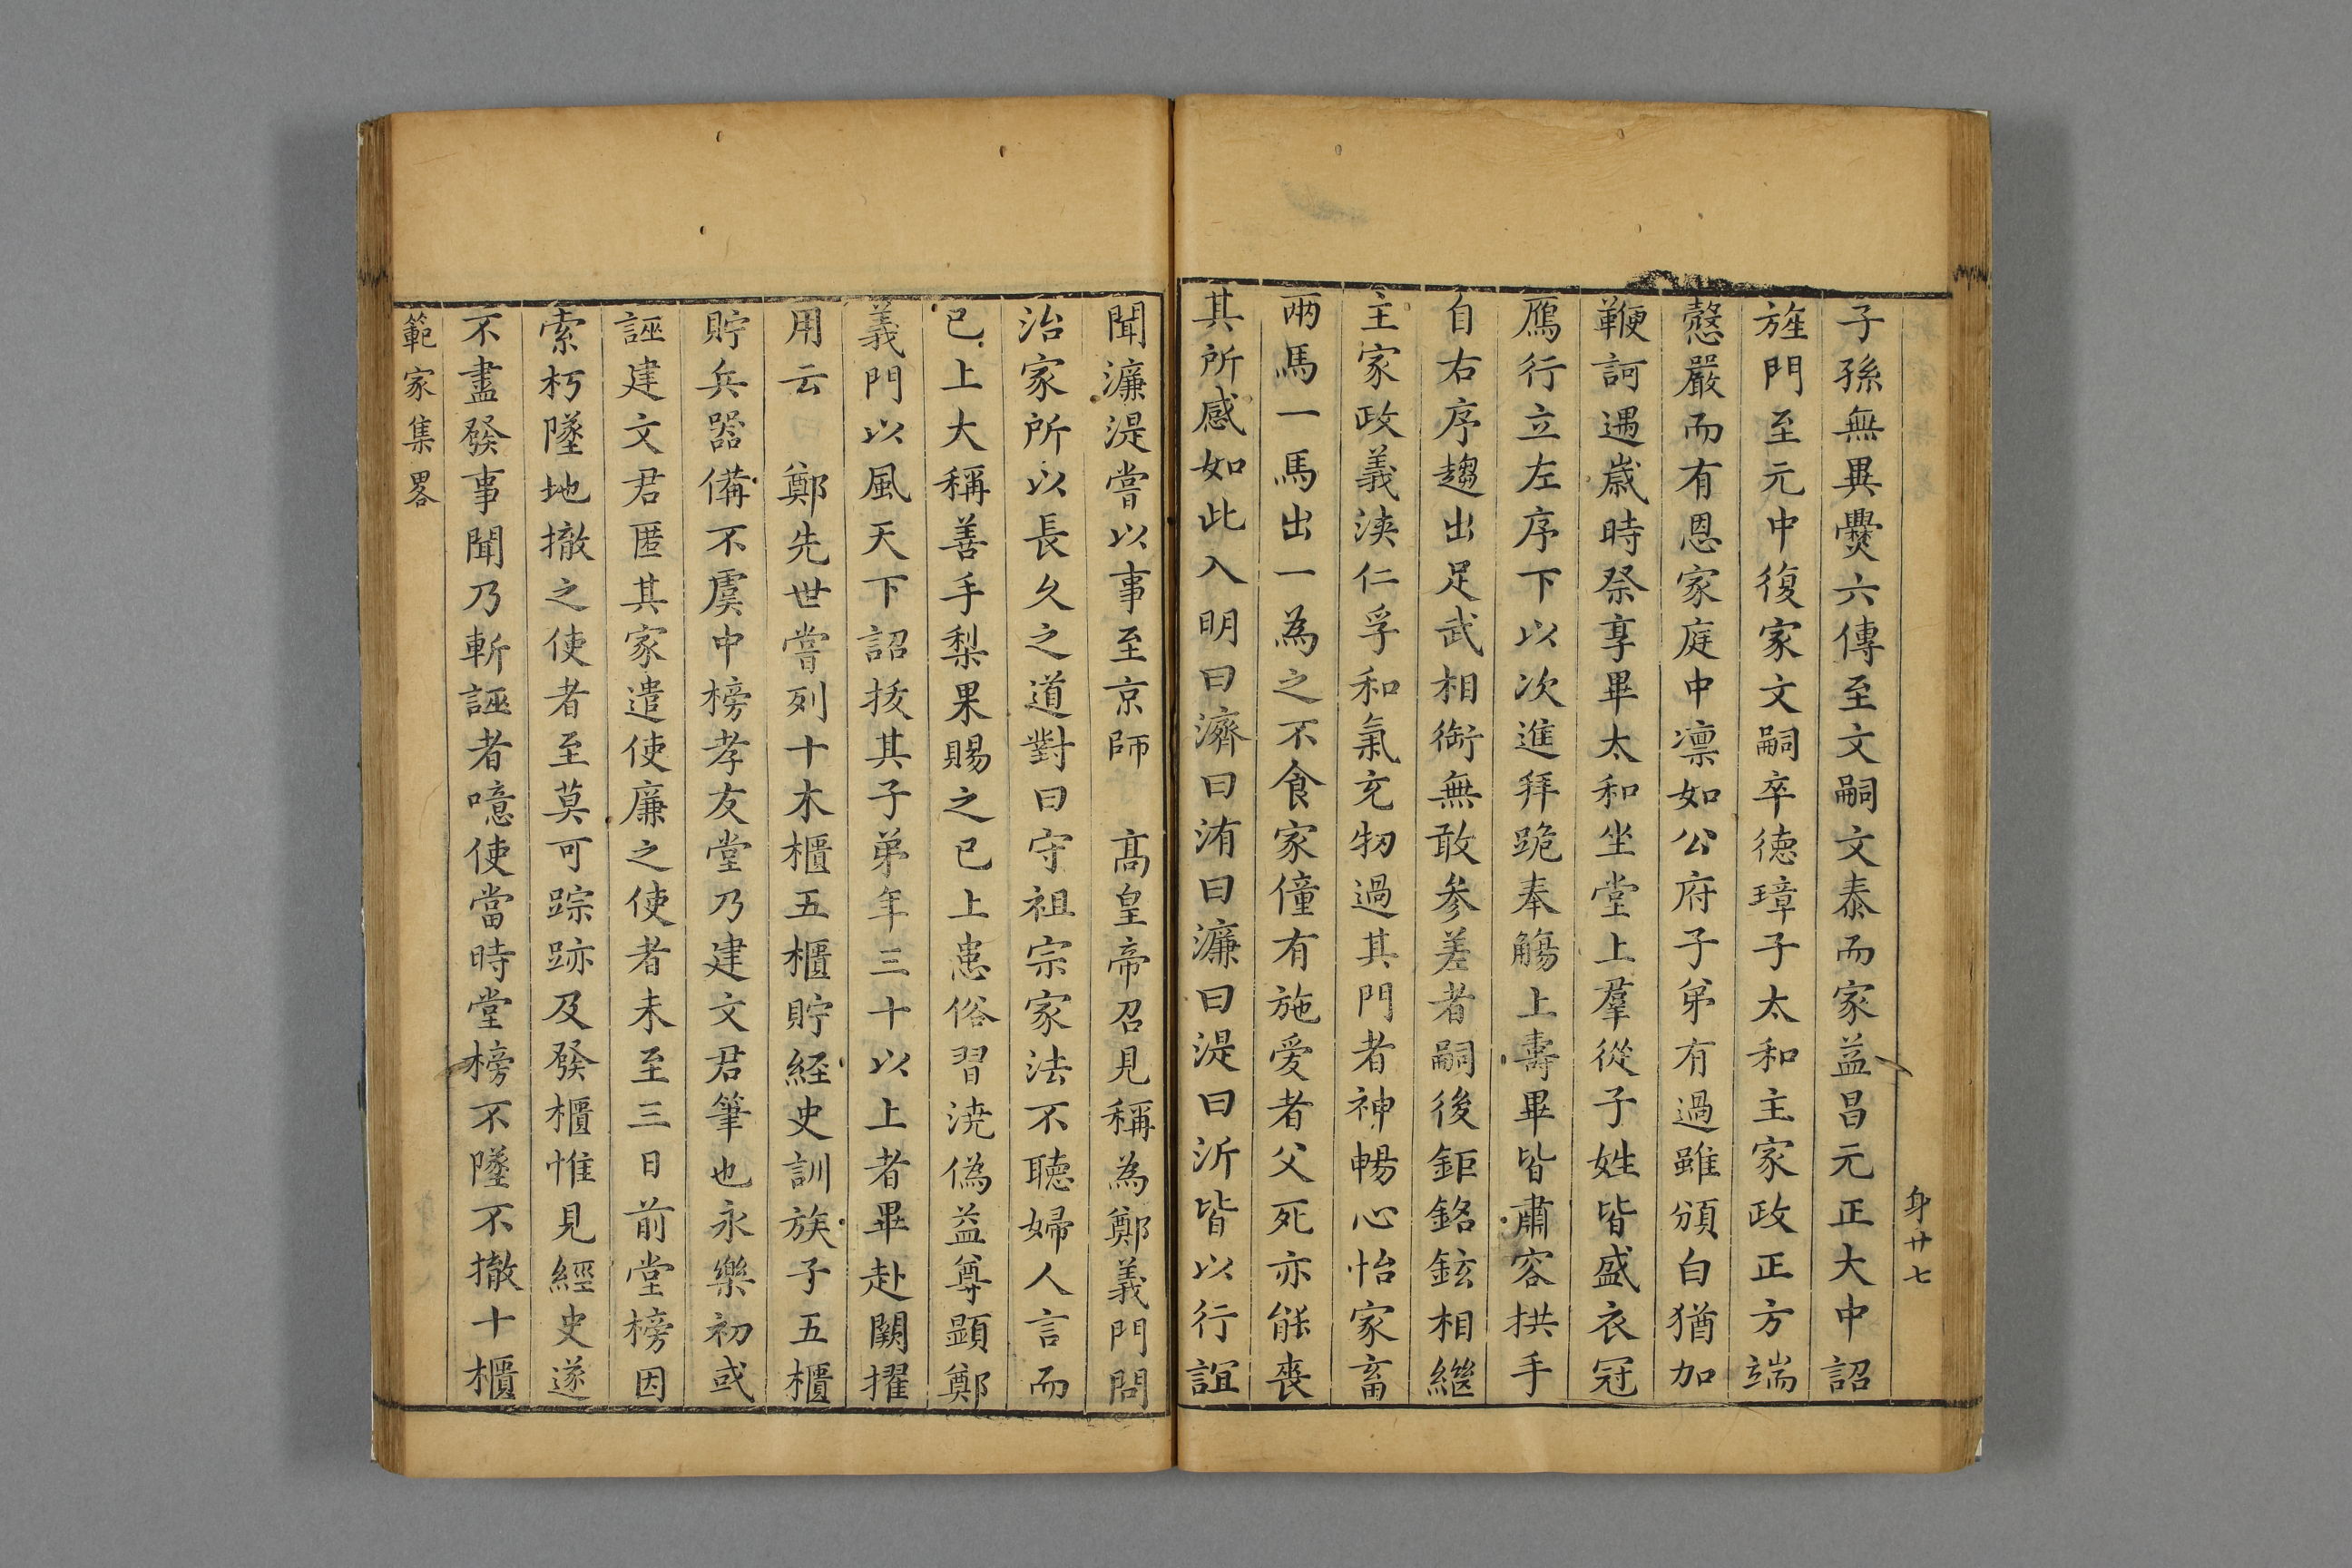 身廿七
子孫無異爨六傳至文嗣文泰而家益昌元正大中詔
旌門至元中復家文嗣卒德璋子太和主家政正方端
慤嚴而有恩家庭中凛如公府子弟有過雖頒白猶加
鞭訶遇歳時祭享畢太和坐堂上羣從子姓皆盛衣冠
鴈行立左序下以次進拜跪奉觴上壽畢皆肅容拱手
自右序趨出足武相銜無敢参差者嗣後鉅銘鉉相繼
主家政義浹仁孚和氣充牣過其門者神暢心怡家畜
兩馬一馬出一為之不食家僮有施爱者父死亦能喪
其所感如此入明曰濟曰洧曰濂曰湜曰沂皆以行誼
聞濂湜嘗以事至京師 髙皇帝召見稱為鄭義門問
治家所以長久之道對曰守祖宗家法不聴婦人言而
已上大稱善手梨果賜之已上恚俗習澆偽益尊顕鄭
義門以風天下詔拔其子弟年三十以上者畢赴闕擢
用云 鄭先世嘗列十木櫃五櫃貯経史訓族子五櫃
貯兵器備不虞中榜孝友堂乃建文君筆也永樂初或
誣建文君匿其家遣使廉之使者未至三日前堂榜因
索朽墜地撤之使者至莫可踪跡及發櫃惟見經史遂
不盡發事聞乃斬誣者噫使當時堂榜不墜不撤十櫃
範家集畧